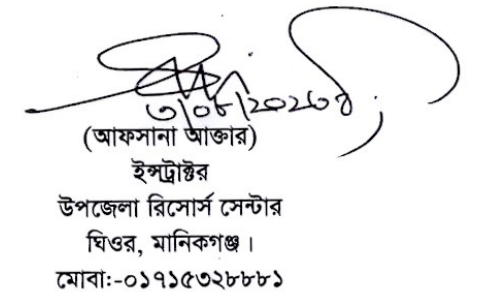 (আফসানা আক্তার)
ইন্সট্রাক্টর
উপজেলা রিসোর্স সেন্টার
ঘিওর, মানিকগঞ্জ ।
মোবাঃ-০১৭১৫৩২৮৮৮১